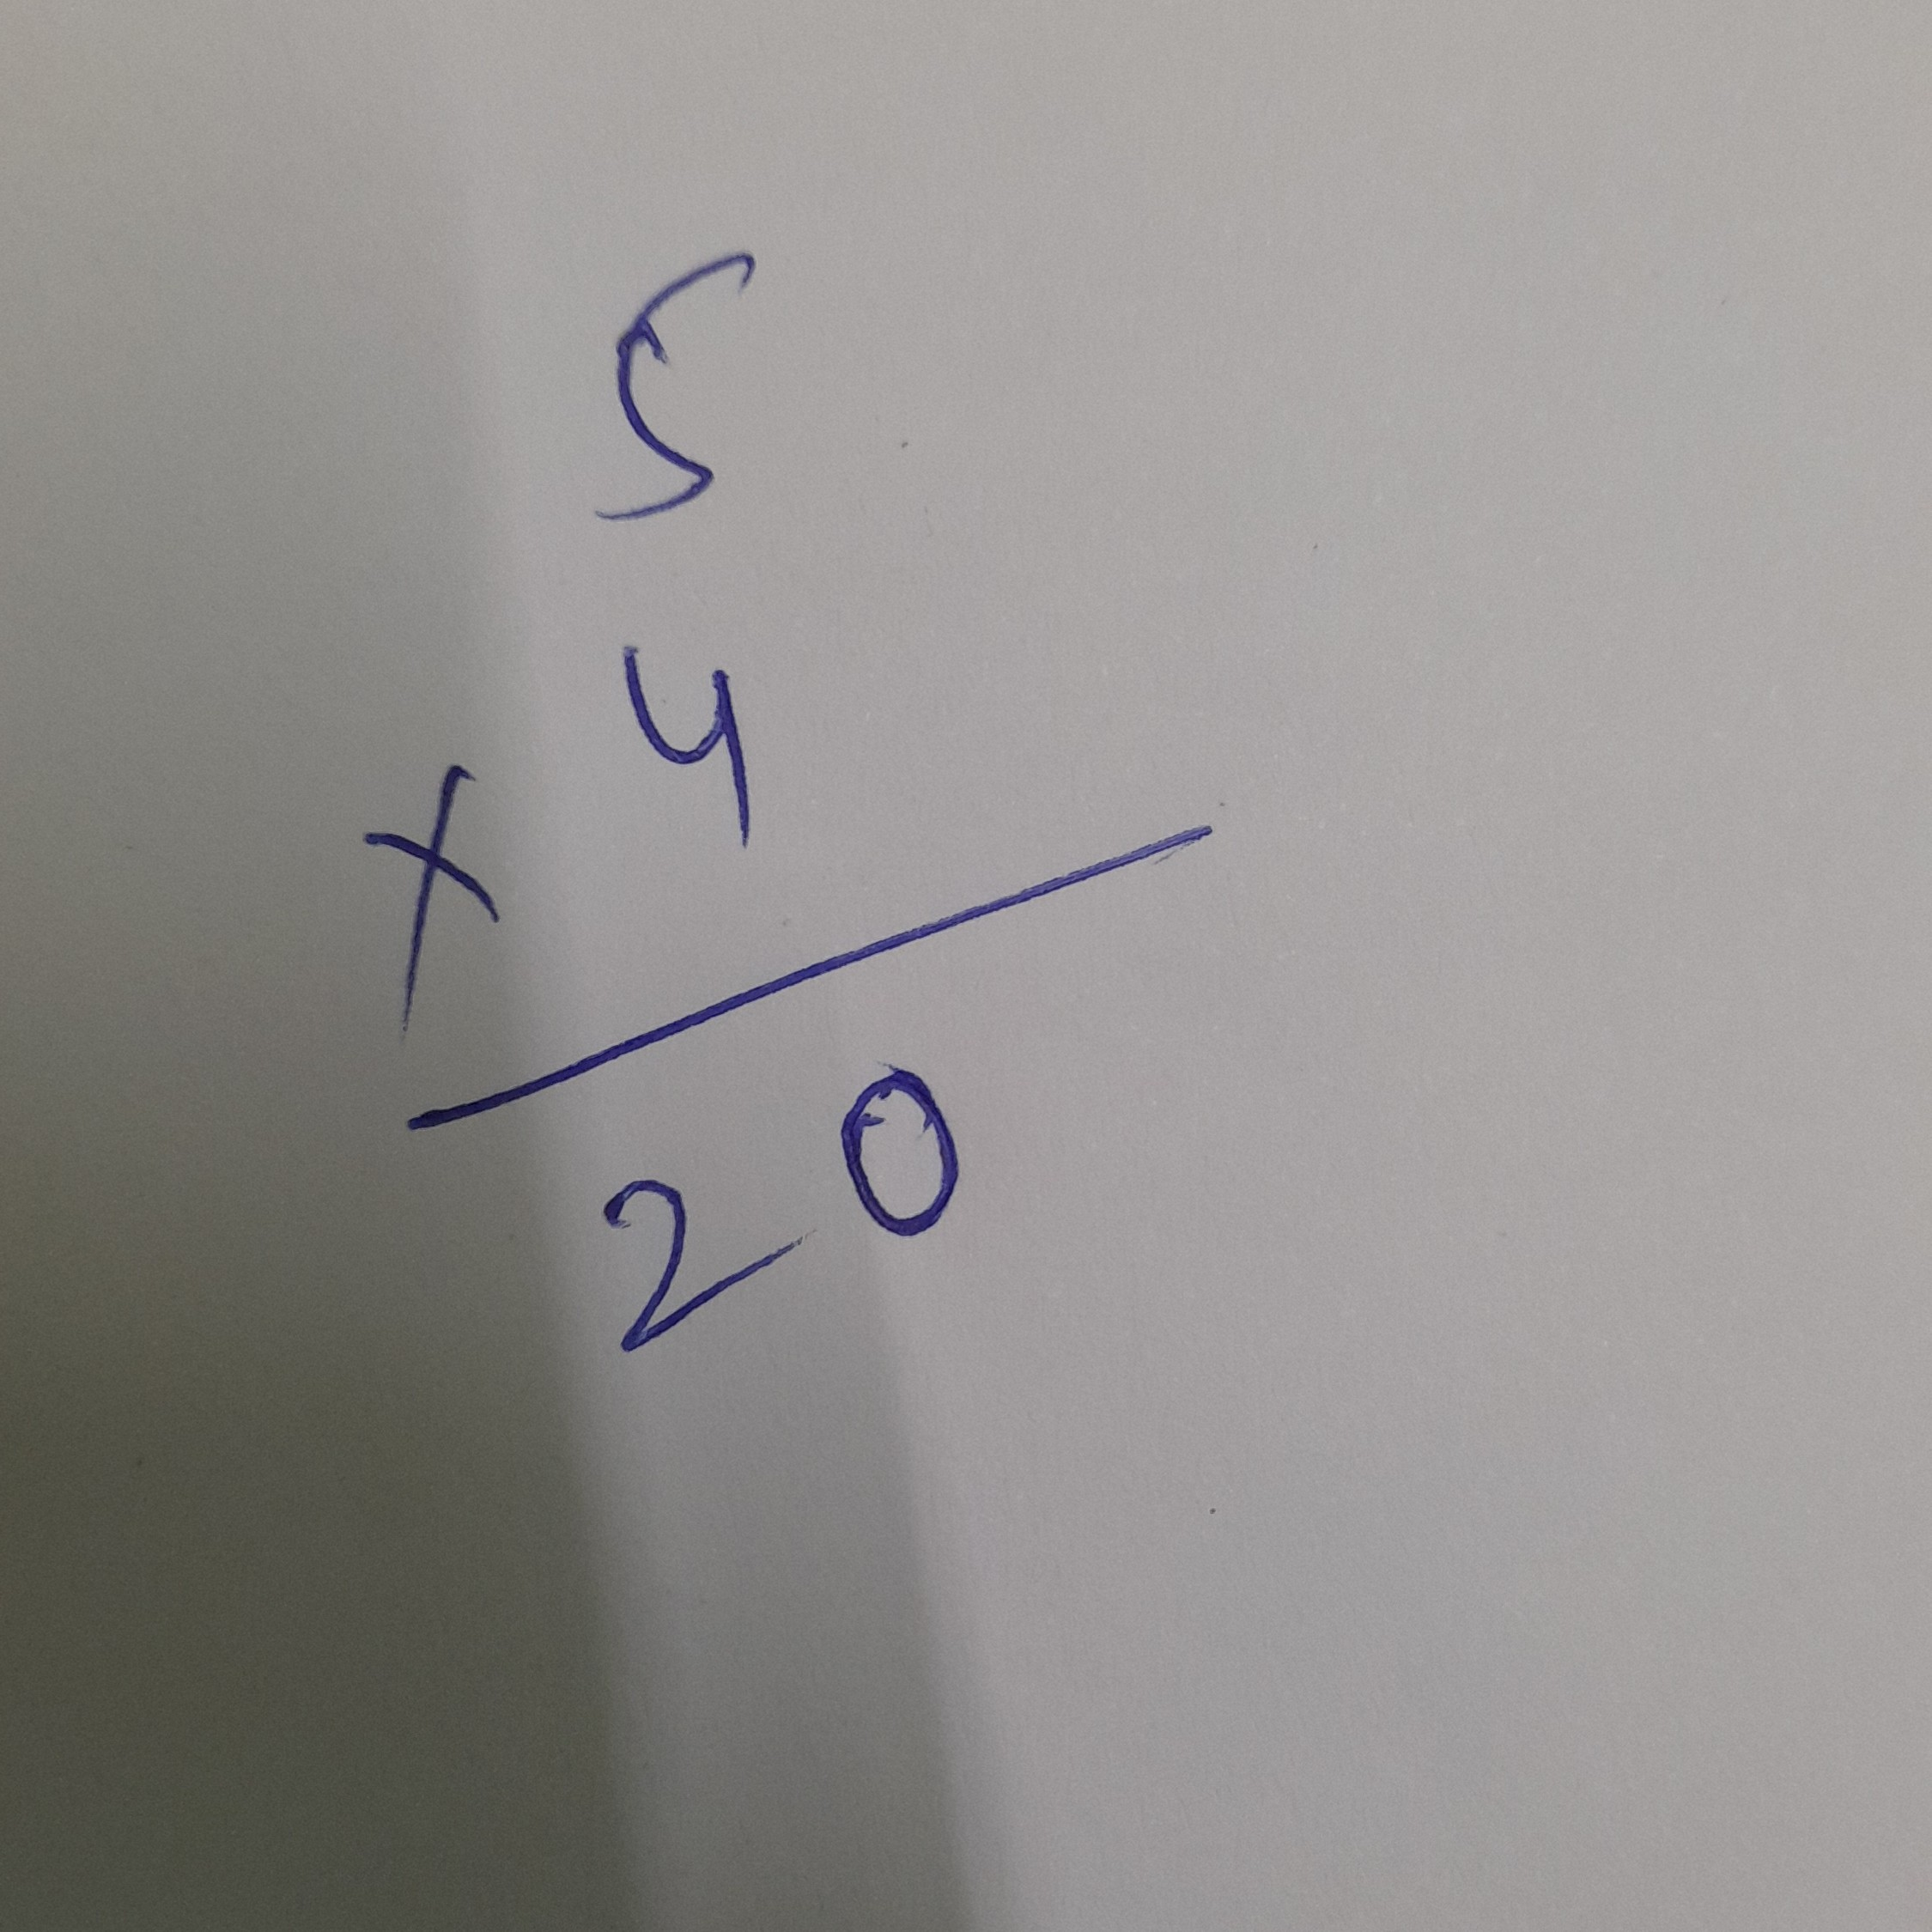 5
x 4
20